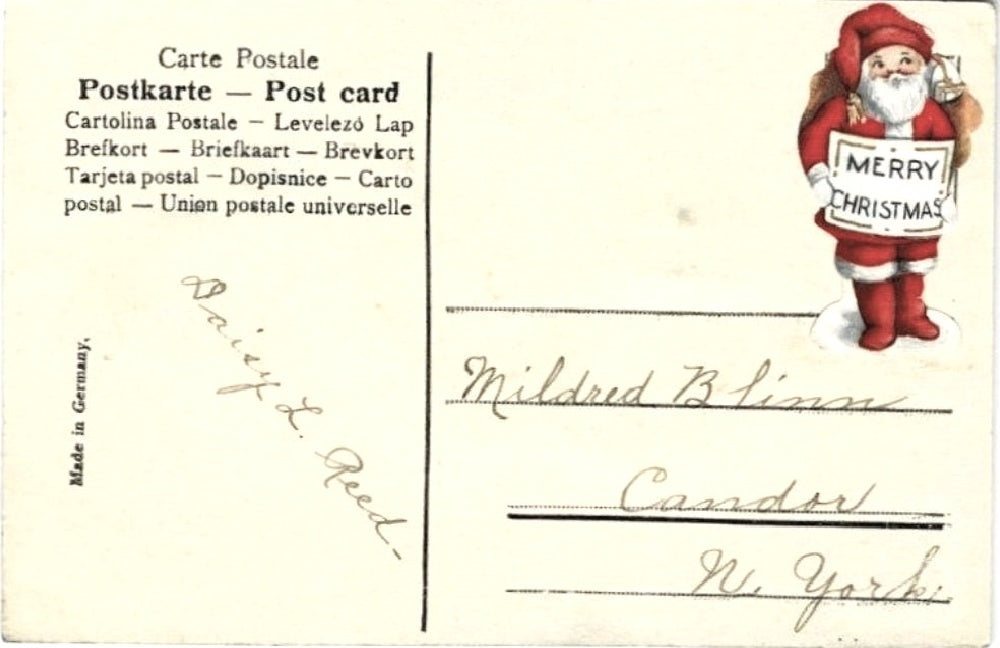 Carte Postale
Postkarte — Post card
Cartolina Postale — Levelező Lap
Brefkort — Briefkaart — Brevkort
Tarjeta postal — Dopisnice — Carto
postal — Union postale universelle
Made in Germany.
Daisy L. Reed-
MERRY
CHRISTMAS
Mildred Blinn
Candor
N. York.